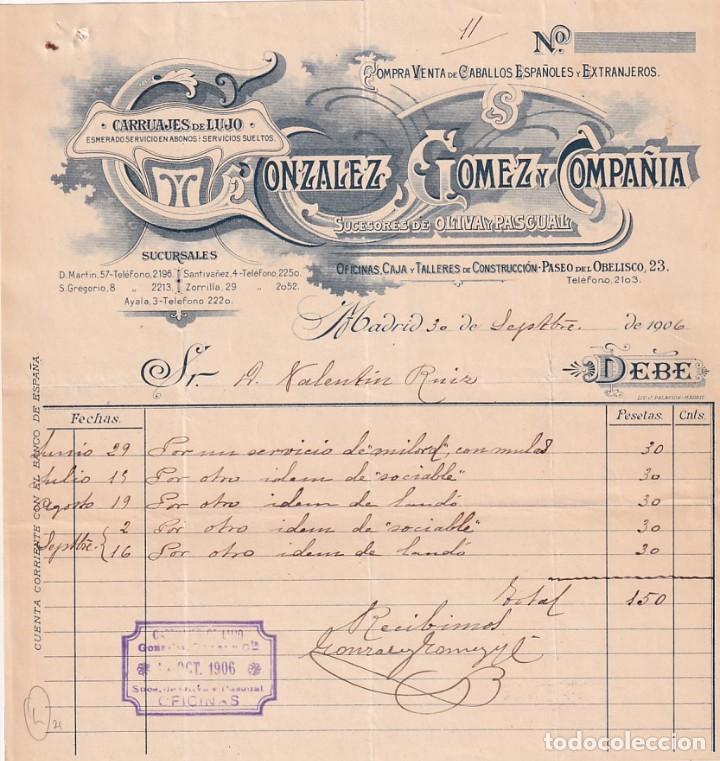 11
Nº.
COMPRA VENTA DE CABALLOS ESPAÑOLES Y EXTRANJEROS.
CARRUAJES DE LUJO
ESMERADO SERVICIO EN ABONOS Y SERVICIOS SUELTOS.
GONZALEZ, GOMEZ Y COMPAÑIA
SUCESORES DE OLIVA Y PASCUAL
SUCURSALES
D. Martin, 57-Teléfono, 2196. Santivañez, 4-Teléfono 2250.
S. Gregorio, 8 " 2213. Zorrilla, 29 " 2052.
Ayala, 3-Telefono 2220.
OFICINAS, CAJA Y TALLERES DE CONSTRUCCIÓN-PASEO DEL OBELISCO, 23.
Teléfono, 2103.
Madrid 30 de Septbre. de 1906
Sr. D. Valentín Ruiz
DEBE
CUENTA CORRIENTE CON EL BANCO DE ESPAÑA.
Fechas. Pesetas. Cnts.
Junio 29 Por un servicio de "milord", con mulas 30
Julio 15 Por otro idem de "sociable" 30
Agosto 19 Por otro idem de landó 30
Septbre. 2 Por otro idem de "sociable" 30
16 Por otro idem de landó 30
Total 150
Recibimos
Gonzalez Gomez y Cª
OCT. 1906
Suces. de Oliva y Pascual
OFICINAS
todocoleccion.net